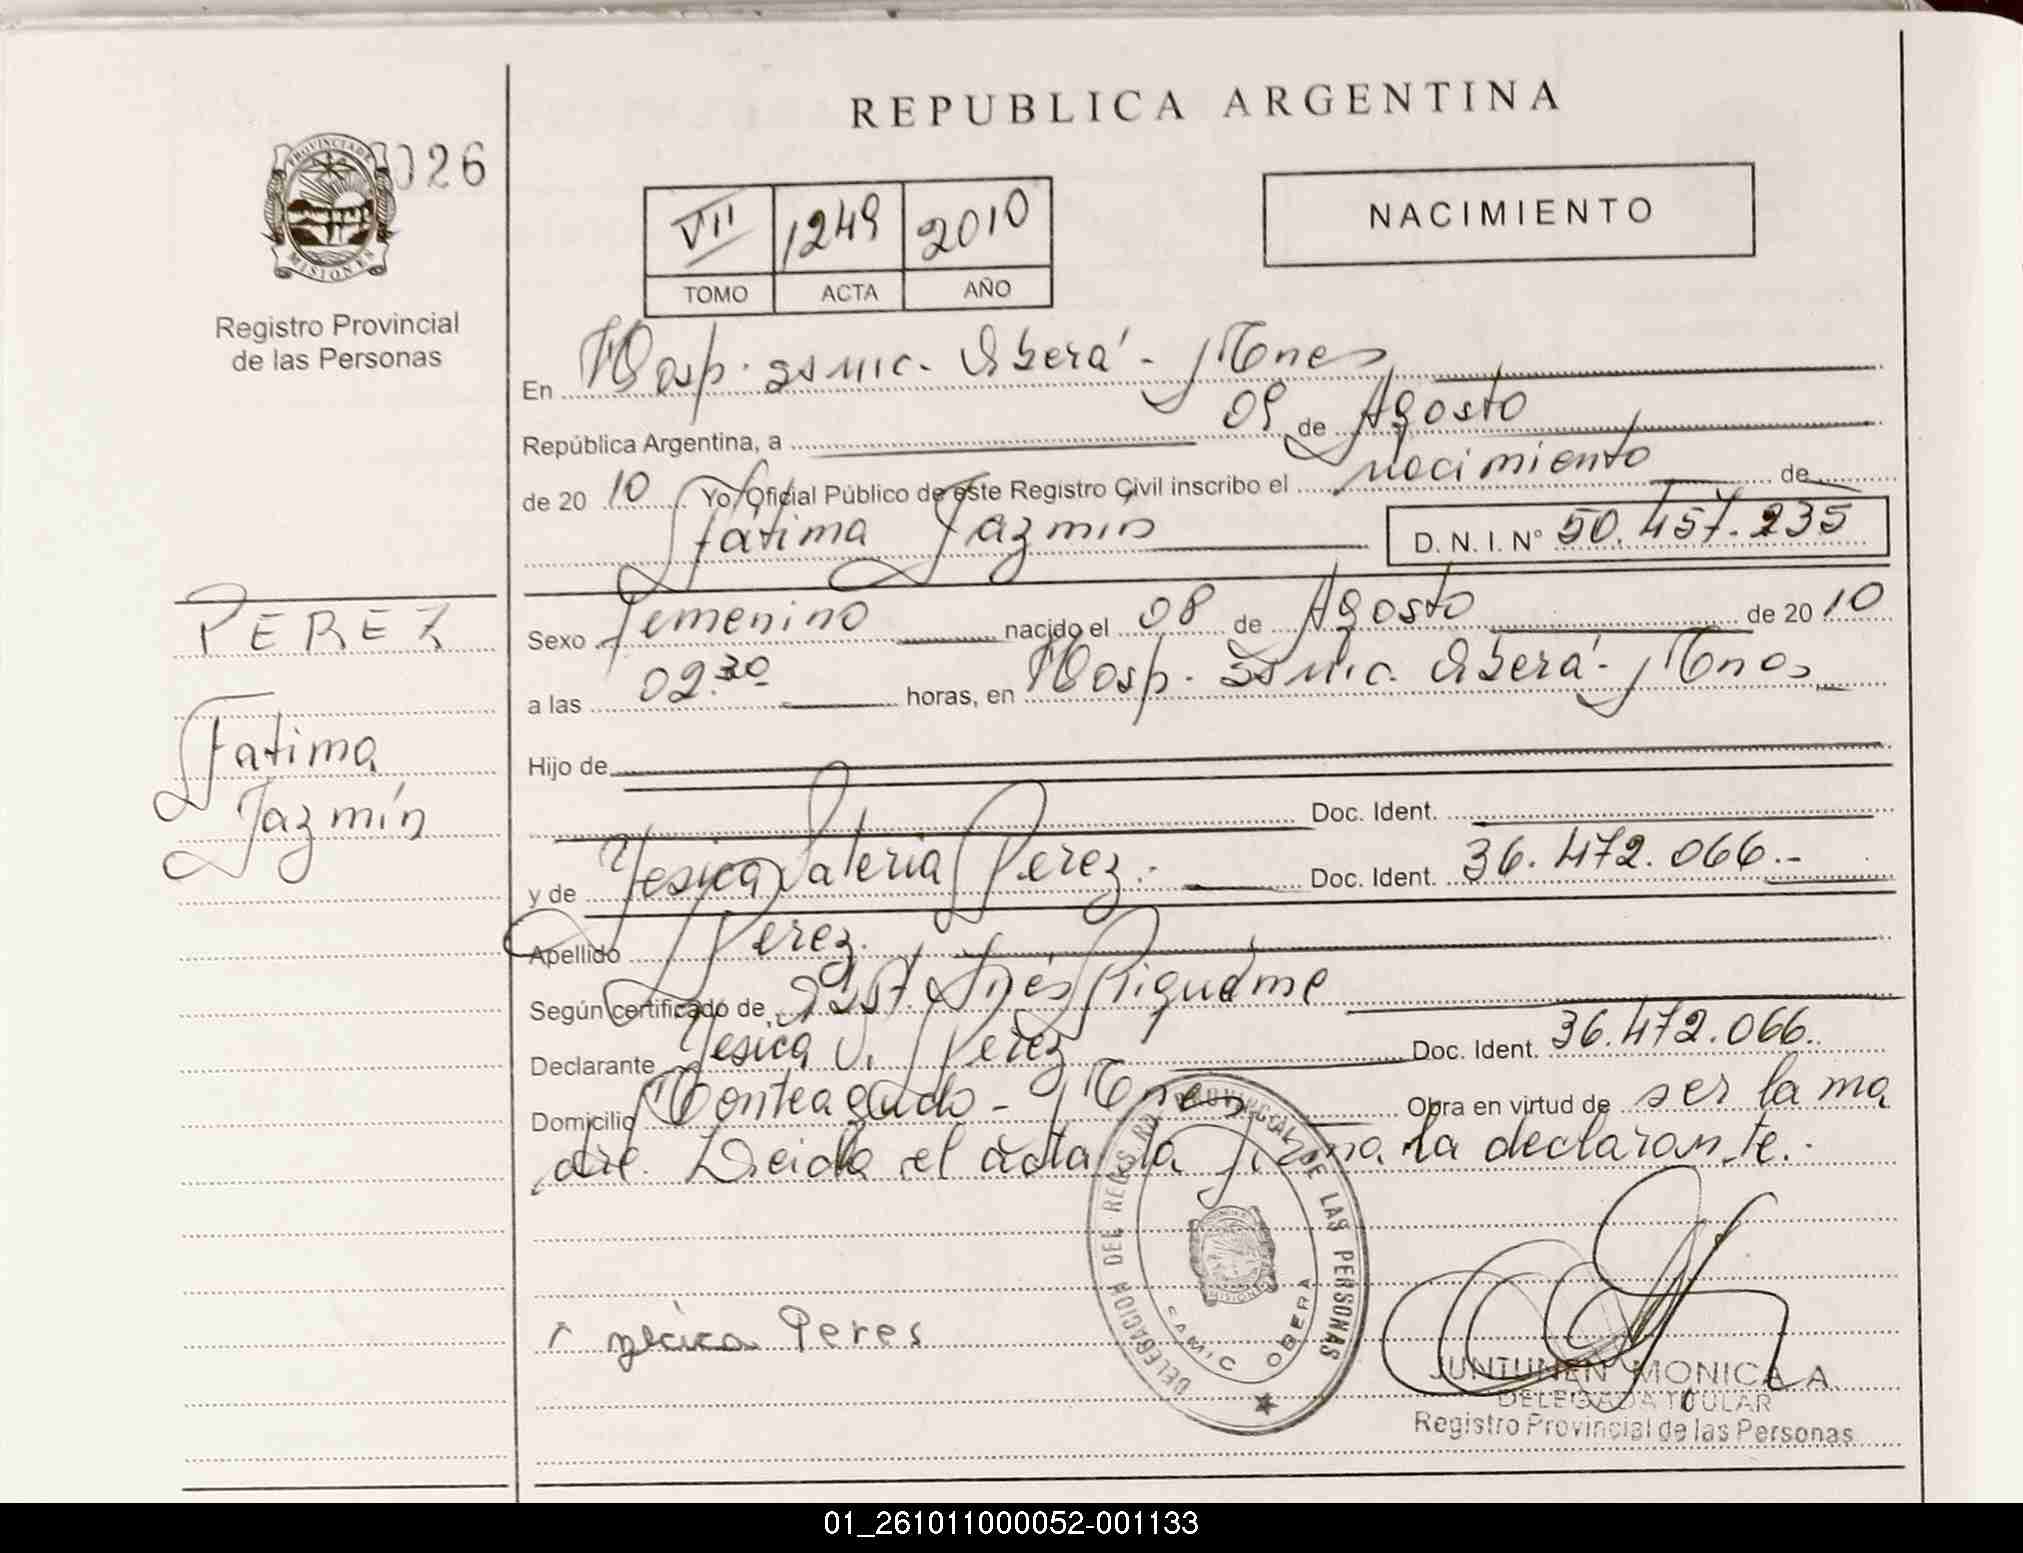 REPUBLICA ARGENTINA
026
PROVINCIA DE
MISIONES
Registro Provincial
de las Personas
NACIMIENTO
VII 1249 2010
TOMO ACTA AÑO
En Hosp. Samic. Oberá - Mnes
República Argentina, a 09 de Agosto
de 20 10 Yo Oficial Público de este Registro Civil inscribo el nacimiento de
Fátima Jazmín D. N. I. N° 50.457.235
PEREZ
Fatima
Jazmín
Sexo Femenino nacido el 08 de Agosto de 20 10
a las 02.30 horas, en Hosp. Samic. Oberá - Mnes
Hijo de
Doc. Ident.
y de Yesica Valeria Perez.- Doc. Ident. 36.472.066.-
Apellido Perez.
Según certificado de Obst. Inés Piquéme
Declarante Yesica V. Perez Doc. Ident. 36.472.066.
Domicilio Monteagudo - Mnes Obra en virtud de ser la ma
dre. Leida el acta la firma la declarante.-
DELEGACION DEL REGISTRO PROVINCIAL DE LAS PERSONAS
MISIONES
SAMIC OBERA
Peres
JUNTUNEN MONICA A
DELEGADA TITULAR
Registro Provincial de las Personas
01_261011000052-001133